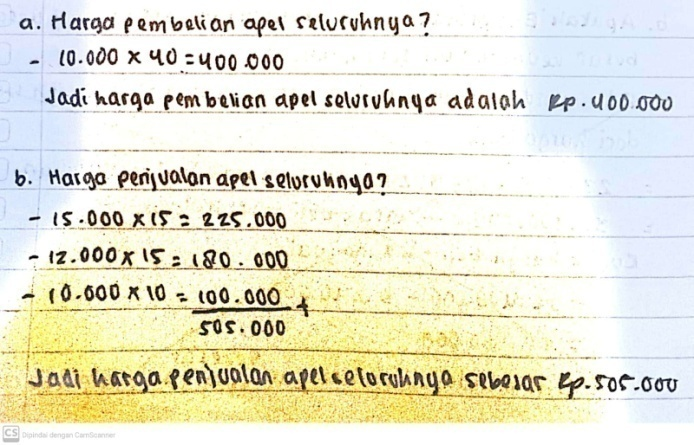 a. Harga pembelian apel seluruhnya?
- 10.000 x 40 = 400.000
Jadi harga pembelian apel seluruhnya adalah Rp. 400.000
b. Harga penjualan apel seluruhnya?
- 15.000 x 15 = 225.000
- 12.000 x 15 = 180.000
- 10.000 x 10 = 100.000 +
505.000
Jadi harga penjualan apel seluruhnya sebesar Rp. 505.000
CS Dipindai dengan CamScanner